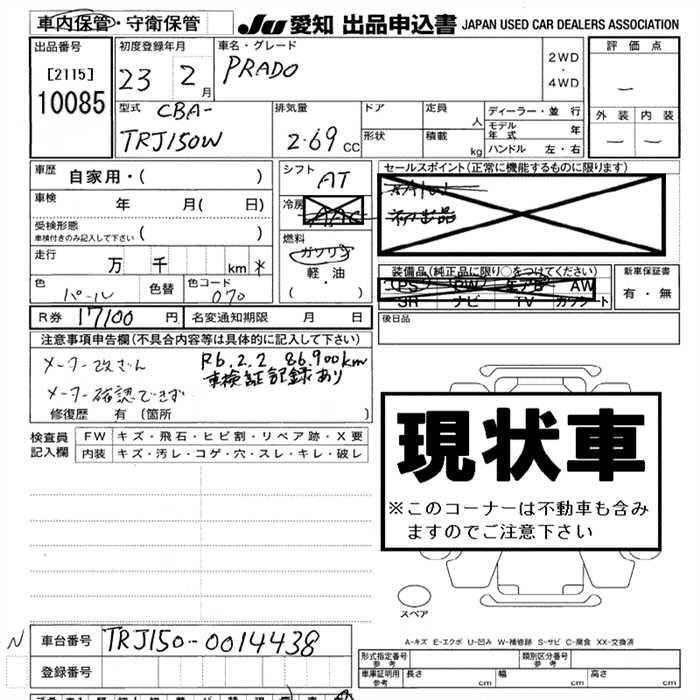 車内保管・守衛保管
JU 愛知 出品申込書 JAPAN USED CAR DEALERS ASSOCIATION
出品番号
[2115]
10085
初度登録年月
23 2月
車名・グレード
PRADO
2WD
・
4WD
評価点
—
外装 内装
— —
型式
CBA-
TRJ150W
排気量
2.69 CC
ドア
形状
定員 人
積載 kg
ディーラー・並行
モデル年式 年
ハンドル 左・右
車歴 自家用・( )
車検 年 月( 日)
受検形態
車検付きのみ記入して下さい ( )
走行 万 千 km *
色 パール
色替
色コード 070
シフト AT
冷房 AAC
燃料
ガソリン
軽・油
( ・ )
セールスポイント(正常に機能するものに限ります)
初出品
装備品(純正品に限り○をつけてください)
PS PW エアB AW
SR ナビ TV カワシート
新車保証書
有・無
R券 17100 円
名変通知期限 月 日
後日品
注意事項申告欄(不具合内容等は具体的に記入して下さい)
メーター改ざん R6.2.2 86,900km
車検証記録あり
メーター確認できず
修復歴 有(箇所 )
検査員記入欄
FW キズ・飛石・ヒビ割・リペア跡・X要
内装 キズ・汚レ・コゲ・穴・スレ・キレ・破レ
現状車
※このコーナーは不動車も含み
ますのでご注意下さい
スペア
N 車台番号 TRJ150-0014438
登録番号
A-キズ E-エクボ U-凹み W-補修跡 S-サビ C-腐食 XX-交換済
形式指定番号 参考
類別区分番号 参考
車庫証明用 参考 長さ cm 幅 cm 高さ cm